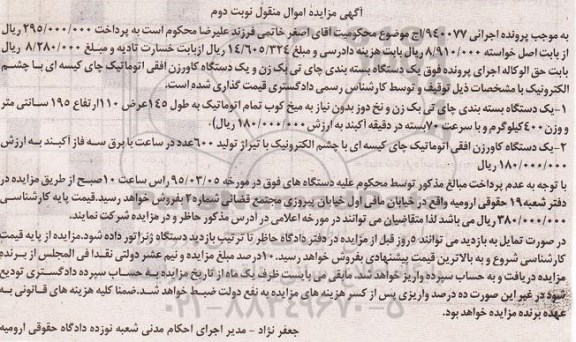 آگهی مزایده اموال منقول نوبت دوم
به موجب پرونده اجرائی ۹۴۰۰۷۷/اج موضوع محکومیت آقای اصغر خاتمی فرزند علیرضا محکوم است به پرداخت ۲۹۵/۰۰۰/۰۰۰ ریال
از بابت اصل خواسته ۸/۹۱۰/۰۰۰ ریال بابت هزینه دادرسی و مبلغ ۱۴/۶۰۵/۳۲۴ ریال ازبابت خسارت تادیه و مبلغ ۸/۲۸۰/۰۰۰ ریال
بابت حق الوکاله اجرای پرونده فوق یک دستگاه بسته بندی چای تی بک زن و یک دستگاه کاورزن افقی اتوماتیک چای کیسه ای با چشم
الکترونیک با مشخصات ذیل توقیف و توسط کارشناس رسمی دادگستری قیمت گذاری شده است.
۱-یک دستگاه بسته بندی چای تی بک زن و نخ دوز بدون نیاز به میخ کوب تمام اتوماتیک به طول ۱۴۵عرض ۱۱۰ارتفاع ۱۹۵ سانتی متر
و وزن ۴۰۰کیلوگرم و با سرعت ۷۰بسته در دقیقه آکبند به ارزش ۱۸۰/۰۰۰/۰۰۰ ریال).
۲-یک دستگاه کاورزن افقی اتوماتیک چای کیسه ای با چشم الکترونیک با تیراژ تولید ۶۰۰عدد در ساعت با برق سه فاز آکبند به ارزش
۱۸۰/۰۰۰/۰۰۰ ریال
با توجه به عدم پرداخت مبالغ مذکور توسط محکوم علیه دستگاه های فوق در مورخه ۹۵/۰۳/۰۵ راس ساعت ۱۰صبح از طریق مزایده در
دفتر شعبه ۱۹ حقوقی ارومیه واقع در خیابان مافی اول خیابان پیروزی مجتمع قضائی شماره۲ بفروش خواهد رسید.قیمت پایه کارشناسی
۳۸۰/۰۰۰/۰۰۰ ریال می باشد لذا متقاضیان می توانند در مورخه اعلامی در آدرس مذکور حاظر و در مزایده شرکت نمایند.
در صورت تمایل به بازدید می توانند ۵روز قبل از مزایده در دفتر دادگاه حاظر تا ترتیب بازدید دستگاه ژنراتور داده شود.مزایده از پایه قیمت
کارشناسی شروع و به بالاترین قیمت پیشنهادی بفروش خواهد رسید. ۱۰درصد مبلغ مزایده و نیم عشر دولتی نقدا فی المجلس از برنده
مزایده دریافت و به حساب سپرده واریز خواهد شد. مابقی می بایست ظرف یک ماه از تاریخ مزایده به حساب سپرده دادگستری تودیع
شود در غیر این صورت ده درصد واریزی پس از کسر هزینه های مزایده به نفع دولت ضبط خواهد شد.ضمنا کلیه هزینه های قانونی به
عهده برنده مزایده خواهد بود.
۰۲۱-۸۸۳۴۹۶۷۰-۵
جعفر نژاد - مدیر اجرای احکام مدنی شعبه نوزده دادگاه حقوقی ارومیه